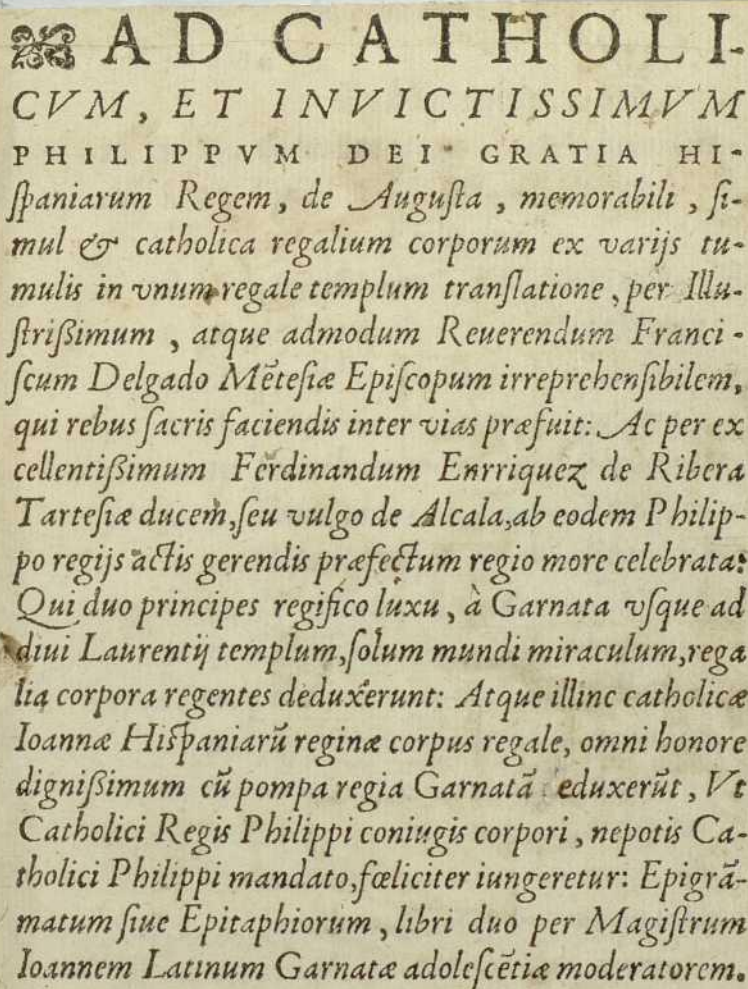 AD CATHOLI-
CVM, ET INVICTISSIMVM
PHILIPPVM DEI GRATIA HI-
ſpaniarum Regem, de Auguſta, memorabili, ſi-
mul & catholica regalium corporum ex varijs tu-
mulis in vnum regale templum tranſlatione, per Illu-
ſtriſsimum, atque admodum Reuerendum Franci-
ſcum Delgado Mẽteſiæ Epiſcopum irreprehenſibilem,
qui rebus ſacris faciendis inter vias præfuit: Ac per ex
cellentiſsimum Ferdinandum Enrriquez de Ribera
Tarteſiæ ducem, ſeu vulgo de Alcala, ab eodem Philip-
po regijs actis gerendis præfectum regio more celebrata:
Qui duo principes regifico luxu, à Garnata vſque ad
diui Laurentij templum, ſolum mundi miraculum, rega
lia corpora regentes deduxerunt: Atque illinc catholicæ
Ioannæ Hiſpaniarũ reginæ corpus regale, omni honore
digniſsimum cũ pompa regia Garnatã eduxerũt, Vt
Catholici Regis Philippi coniugis corpori, nepotis Ca-
tholici Philippi mandato, fœliciter iungeretur: Epigrã-
matum ſiue Epitaphiorum, libri duo per Magiſtrum
Ioannem Latinum Garnatæ adoleſcẽtiæ moderatorem.